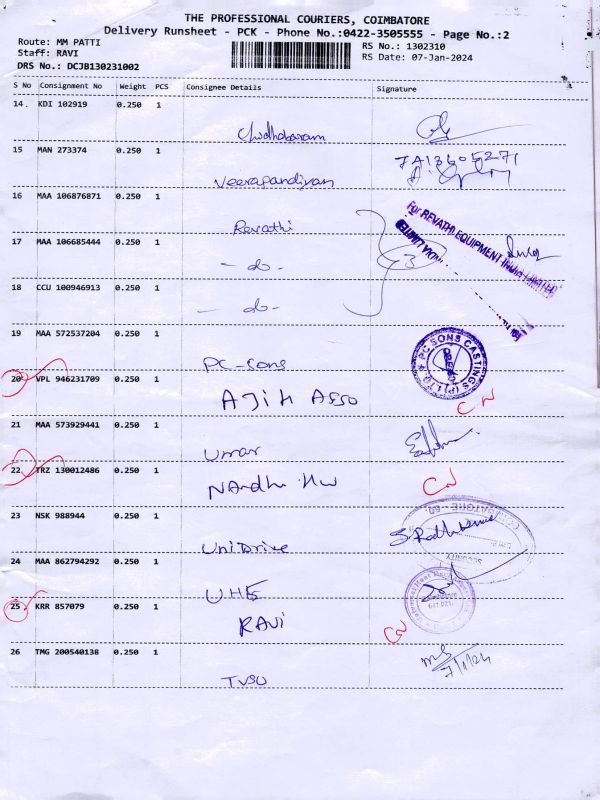 THE PROFESSIONAL COURIERS, COIMBATORE
Delivery Runsheet - PCK - Phone No.:0422-3505555 - Page No.:2
Route: MM PATTI
RS No.: 1302310
Staff: RAVI
RS Date: 07-Jan-2024
DRS No.: DCJB130231002
S No Consignment No Weight PCS Consignee Details Signature
14. KDI 102919 0.250 1
Chidhabaram
15 MAN 273374 0.250 1
Veerapandiyan
16 MAA 106876871 0.250 1
Revathi
For REVATHI EQUIPMENT INDIA LIMITED
17 MAA 106685444 0.250 1
- do -
3
18 CCU 100946913 0.250 1
- do -
19 MAA 572537204 0.250 1
PC-Sons
PC SONS CASTINGS (P) LTD
20 VPL 946231709 0.250 1
AJith Asso
CN
21 MAA 573929441 0.250 1
Umar
22 TRZ 130012486 0.250 1
Nandhi HW
CN
23 NSK 988944 0.250 1
Unidrive
SECURITY
24 MAA 862794292 0.250 1
UHE
25 KRR 857079 0.250 1
RAVi
CN
26 TMG 200540138 0.250 1
TVSU
7/1/24